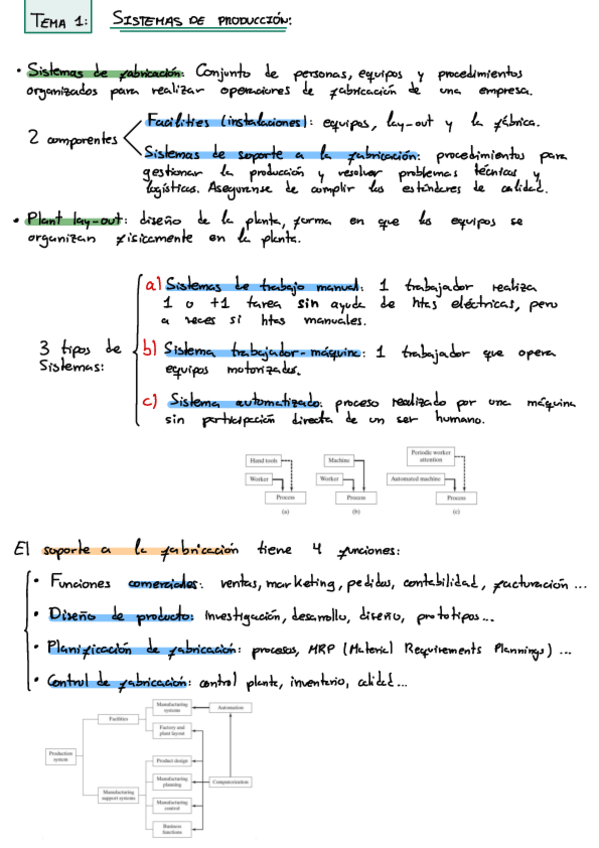 TEMA 1: SISTEMAS DE PRODUCCIÓN:
• Sistemas de fabricación: Conjunto de personas, equipos y procedimientos
organizados para realizar operaciones de fabricación de una empresa.
2 componentes
Facilities (instalaciones): equipos, lay-out y la fábrica.
Sistemas de soporte a la fabricación: procedimientos para
gestionar la producción y resolver problemas técnicos y
logísticos. Asegurense de cumplir los estándares de calidad.
• Plant lay-out: diseño de la planta, forma en que los equipos se
organizan físicamente en la planta.
3 tipos de
Sistemas:
a) Sistemas de trabajo manual: 1 trabajador realiza
1 o +1 tarea sin ayuda de htas eléctricas, pero
a veces si htas manuales.
b) Sistema trabajador-máquina: 1 trabajador que opera
equipos motorizados.
c) Sistema automatizado: proceso realizado por una máquina
sin participación directa de un ser humano.
Hand tools
Worker
Process
(a)
Machine
Worker
Process
(b)
Periodic worker
attention
Automated machine
Process
(c)
El soporte a la fabricación tiene 4 funciones:
• Funciones comerciales: ventas, marketing, pedidos, contabilidad, facturación ...
• Diseño de producto: Investigación, desarrollo, diseño, prototipos...
• Planificación de fabricación: procesos, MRP (Material Requirements Plannings) ...
• Control de fabricación: control planta, inventario, calidad...
Production
system
Facilities
Manufacturing
support systems
Manufacturing
systems
Factory and
plant layout
Product design
Manufacturing
planning
Manufacturing
control
Business
functions
Automation
Computerization